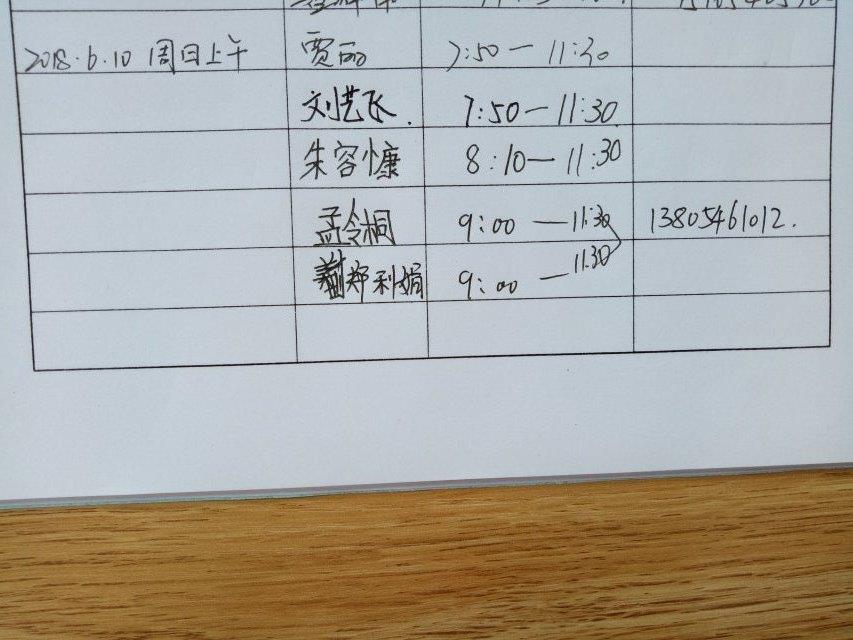 2018.6.10 周日上午 贾丽 7:50—11:30
刘艺飞. 7:50—11:30
朱容慷 8:10—11:30
孟令桐 9:00—11:30 13805461012.
郑利娟 9:00—11:30